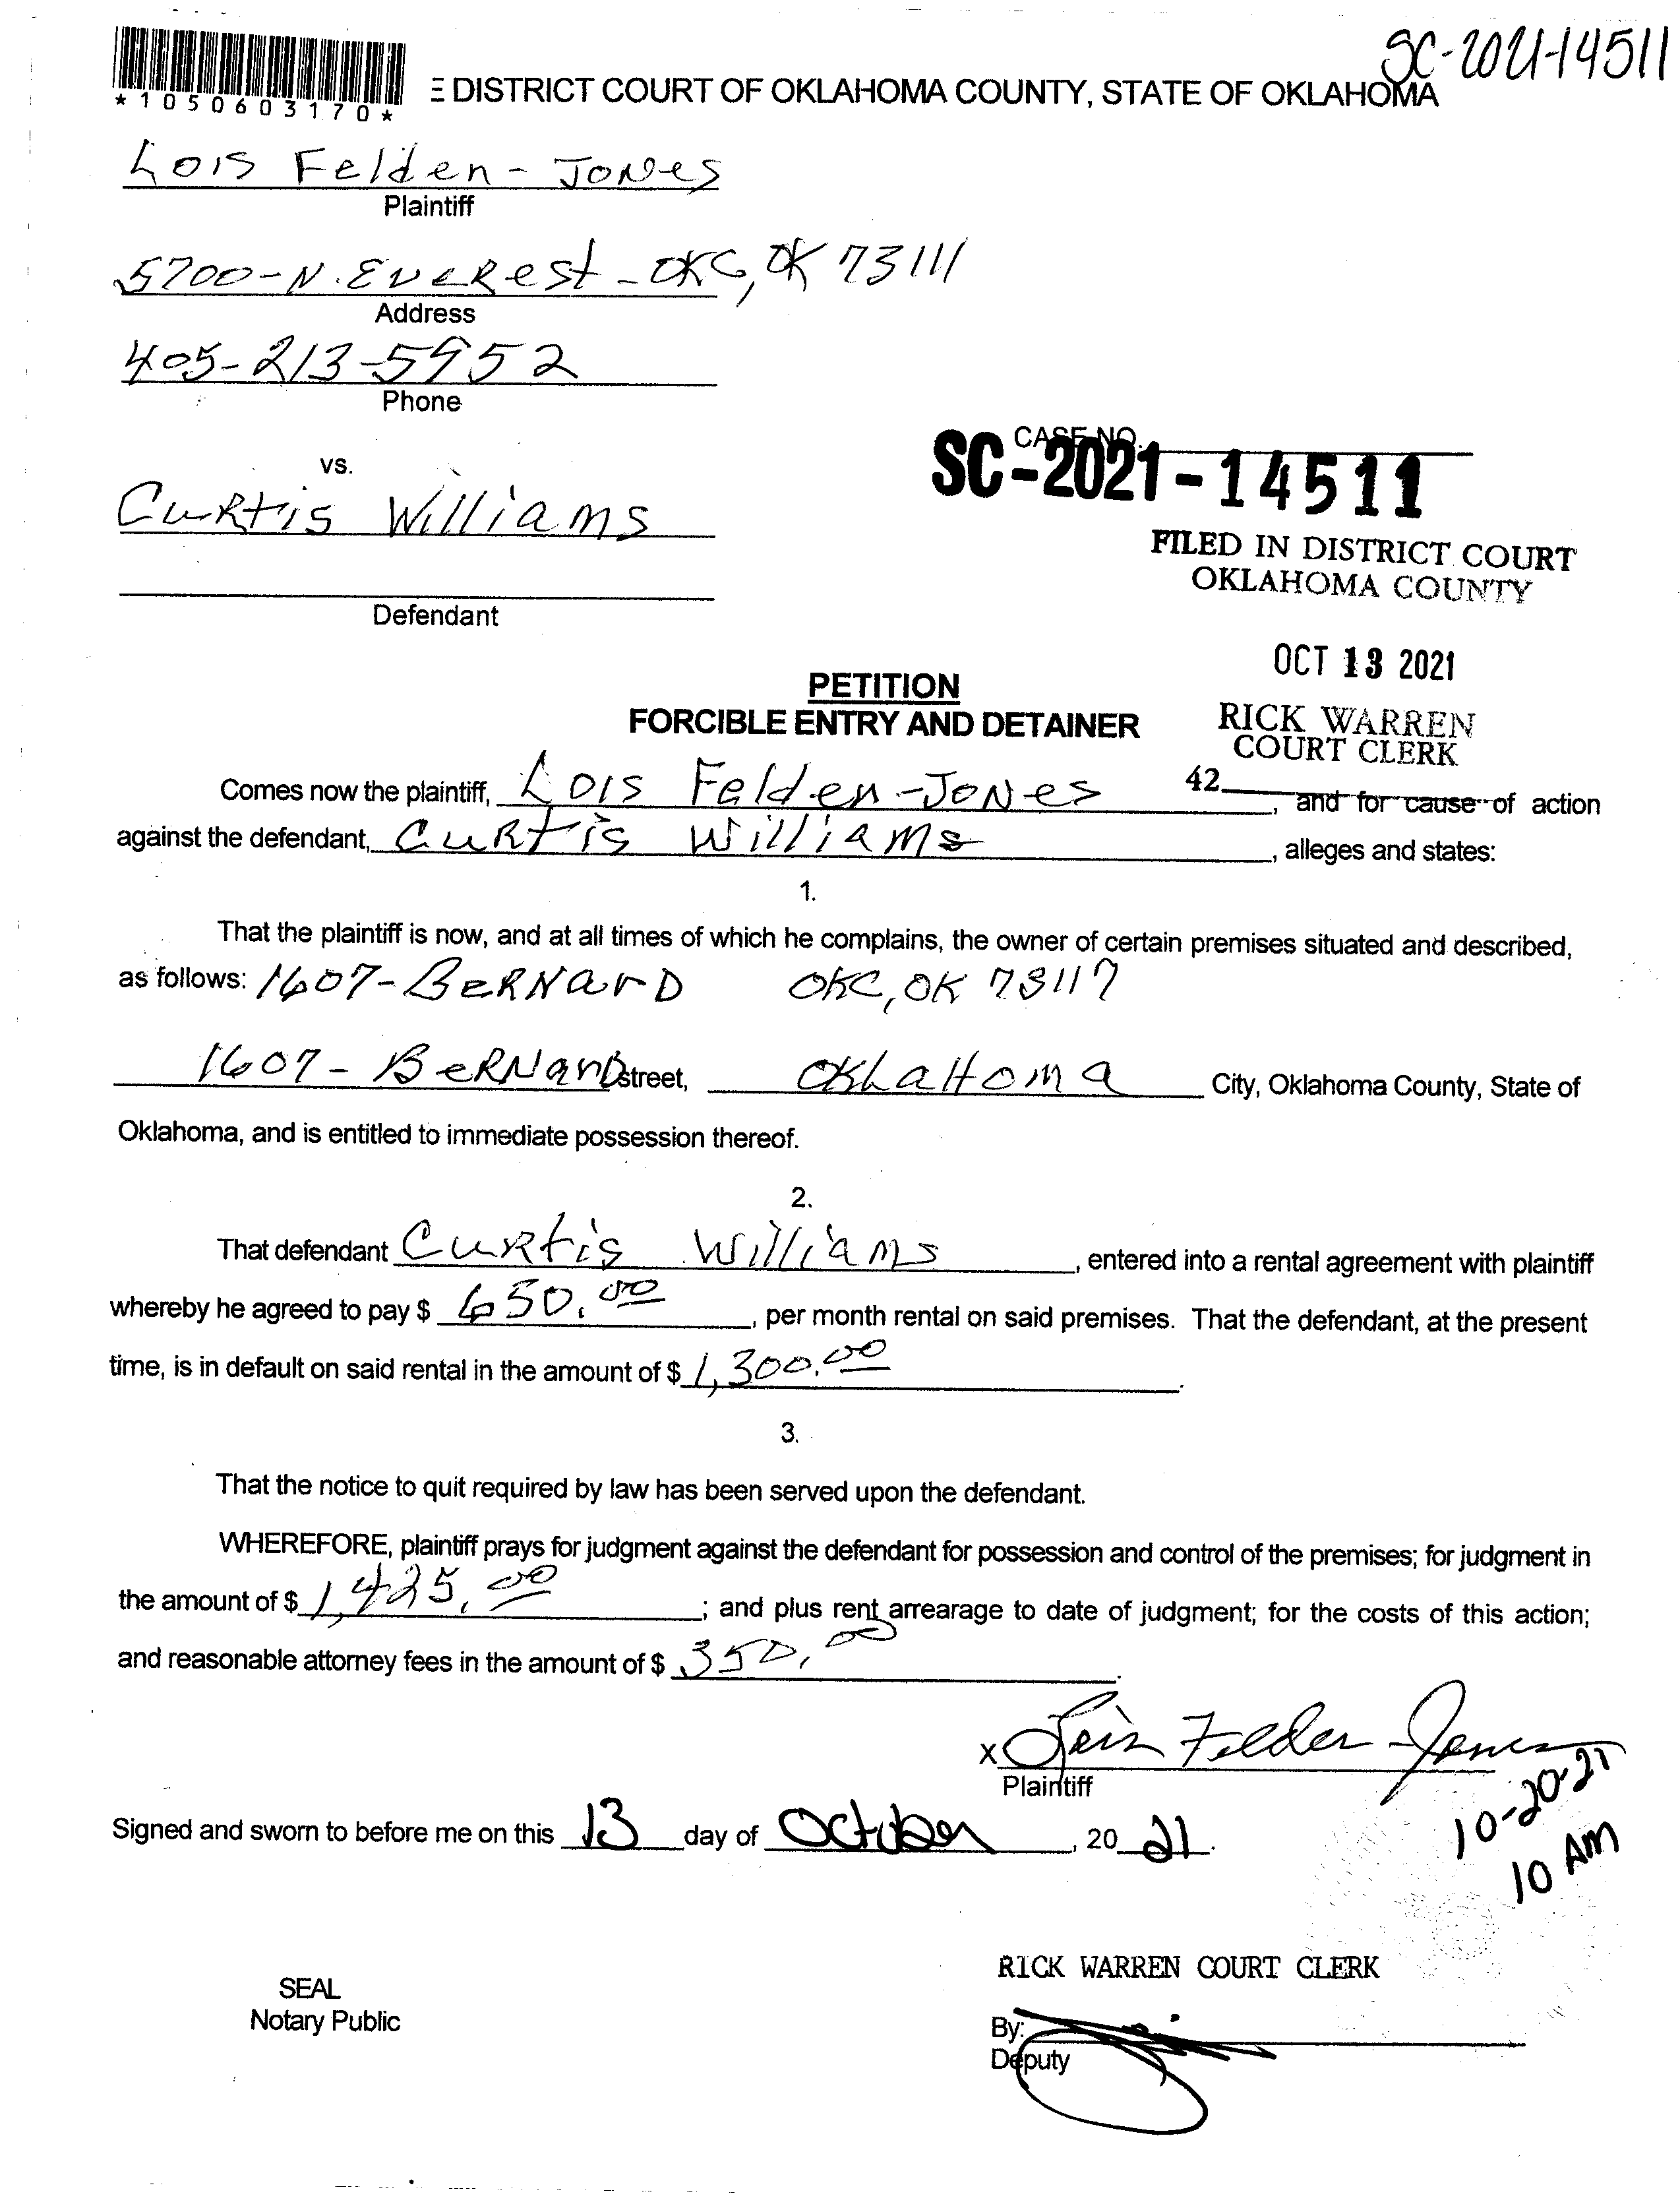 SC-2021-14511
*1050603170*
E DISTRICT COURT OF OKLAHOMA COUNTY, STATE OF OKLAHOMA
Lois Felden-Jones
Plaintiff
5700-N. Everest-OKC, OK 73111
Address
405-213-5952
Phone
CASE NO.
SC-2021-14511
vs.
Curtis Williams
FILED IN DISTRICT COURT
OKLAHOMA COUNTY
Defendant
OCT 13 2021
PETITION
FORCIBLE ENTRY AND DETAINER
RICK WARREN
COURT CLERK
42
Comes now the plaintiff, Lois Felden-Jones, and for cause of action
against the defendant, Curtis Williams, alleges and states:
1.
That the plaintiff is now, and at all times of which he complains, the owner of certain premises situated and described,
as follows: 1607-Bernard OKC, OK 73117
1607-Bernard street, Oklahoma City, Oklahoma County, State of
Oklahoma, and is entitled to immediate possession thereof.
2.
That defendant Curtis Williams, entered into a rental agreement with plaintiff
whereby he agreed to pay $ 650.00, per month rental on said premises. That the defendant, at the present
time, is in default on said rental in the amount of $ 1,300.00.
3.
That the notice to quit required by law has been served upon the defendant.
WHEREFORE, plaintiff prays for judgment against the defendant for possession and control of the premises; for judgment in
the amount of $ 1,425.00; and plus rent arrearage to date of judgment; for the costs of this action;
and reasonable attorney fees in the amount of $ 350.00.
X Lois Felder-Jones
Plaintiff
Signed and sworn to before me on this 13 day of October, 20 21.
10-20-21
10 AM
RICK WARREN COURT CLERK
SEAL
Notary Public
By:
Deputy